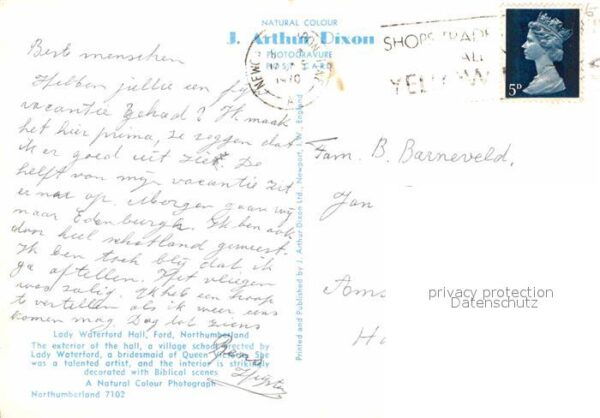 NATURAL COLOUR
J. Arthur Dixon
PHOTOGRAVURE
POST CARD
1970
SHOPS TRADE
YELLOW
5D
Beste menschen
Hebben jullie een fijne
vacantie gehad? Ik maak
het hier prima, ze zeggen dat
ik er goed uit zie. De
helft van mijn vacantie zit
er nat op. Morgen gaan wij
naar Edenburgh. Ik ben ook
door heel schotland geweest.
Ik ben toch blij dat ik
ga aftellen. Het vliegen
was zalig. Ik heb een hoop
te vertellen als ik weer eens
komen mag. Dag tot ziens
Fam. B. Barneveld,
Jan
Ams
H
privacy protection
Datenschutz
Printed and Published by J. Arthur Dixon Ltd., Newport, I.W., England
Lady Waterford Hall, Ford, Northumberland
The exterior of the hall, a village school erected by
Lady Waterford, a bridesmaid of Queen Victoria. She
was a talented artist, and the interior is strikingly
decorated with Biblical scenes
A Natural Colour Photograph
Northumberland 7102